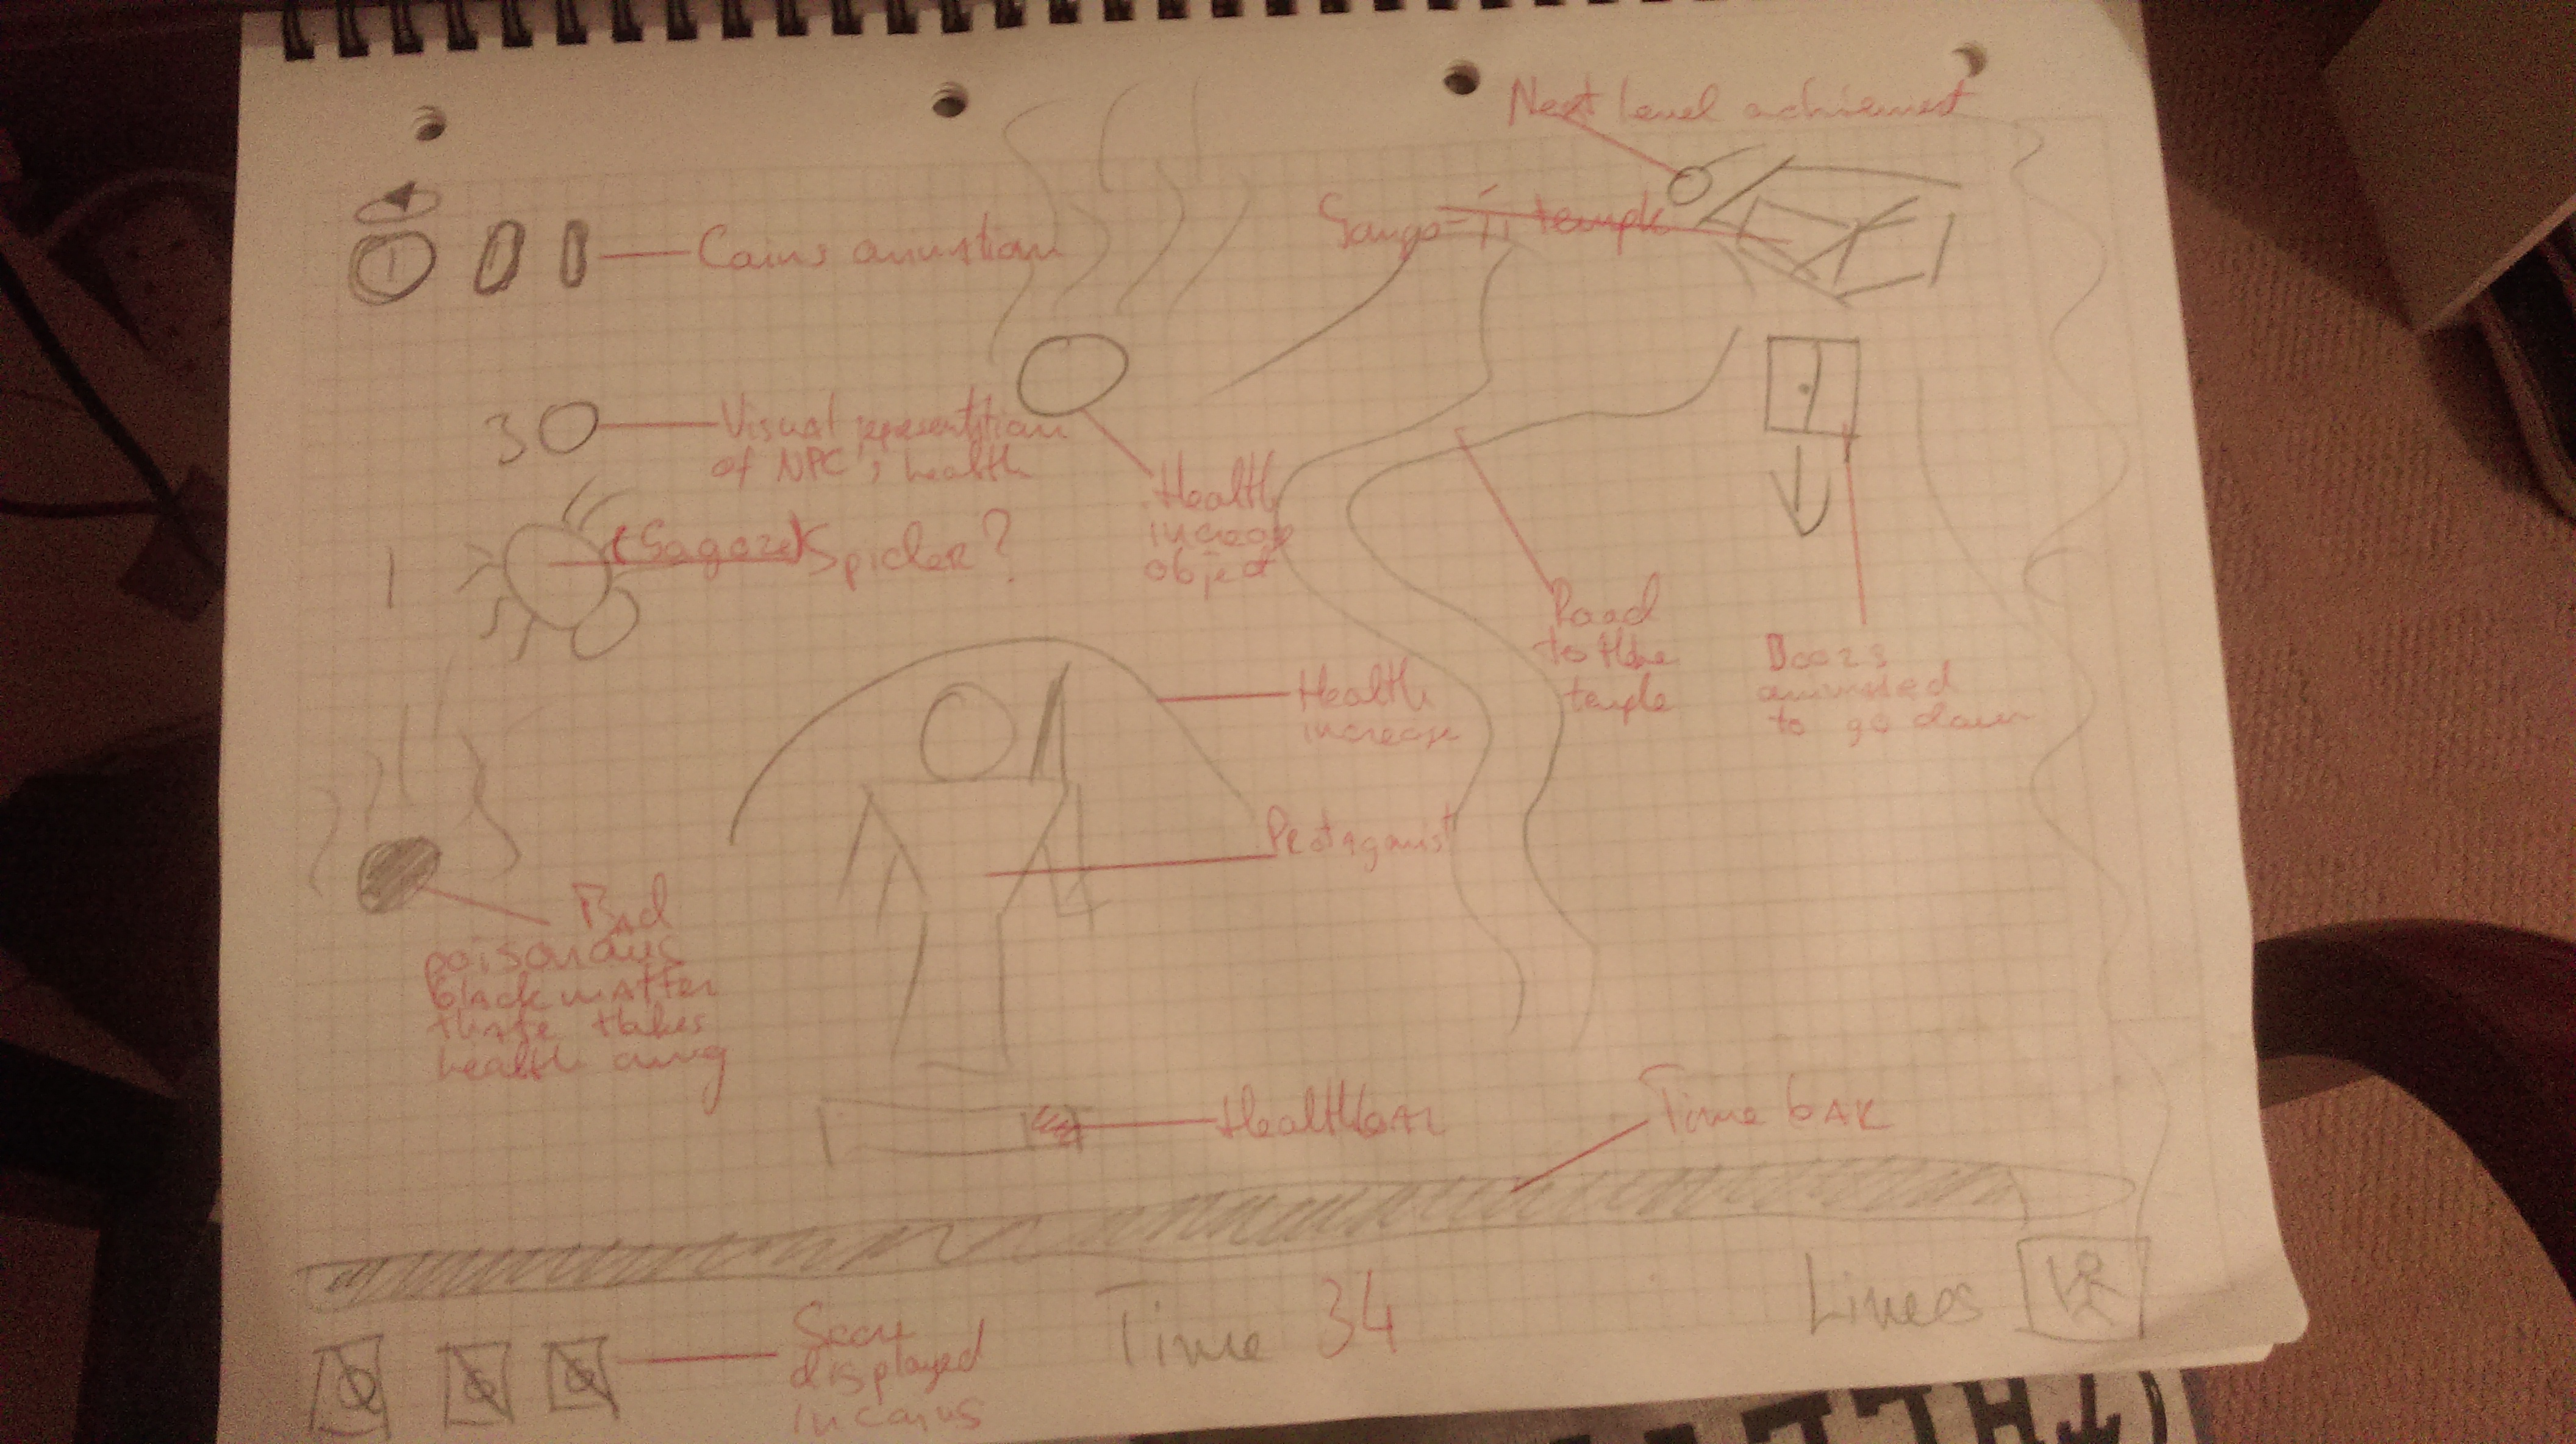 Next level achievement
temple
Coins
30
Visual representation
of NPC's health
Health
increase
object
1
Spider?
Road
to the
temple
Doors
animated
to go down
Health
increase
Protagonist
Bad
poisonous
black matter
takes
health away
Healthbar
Time bar
Time 34
displayed
in coins